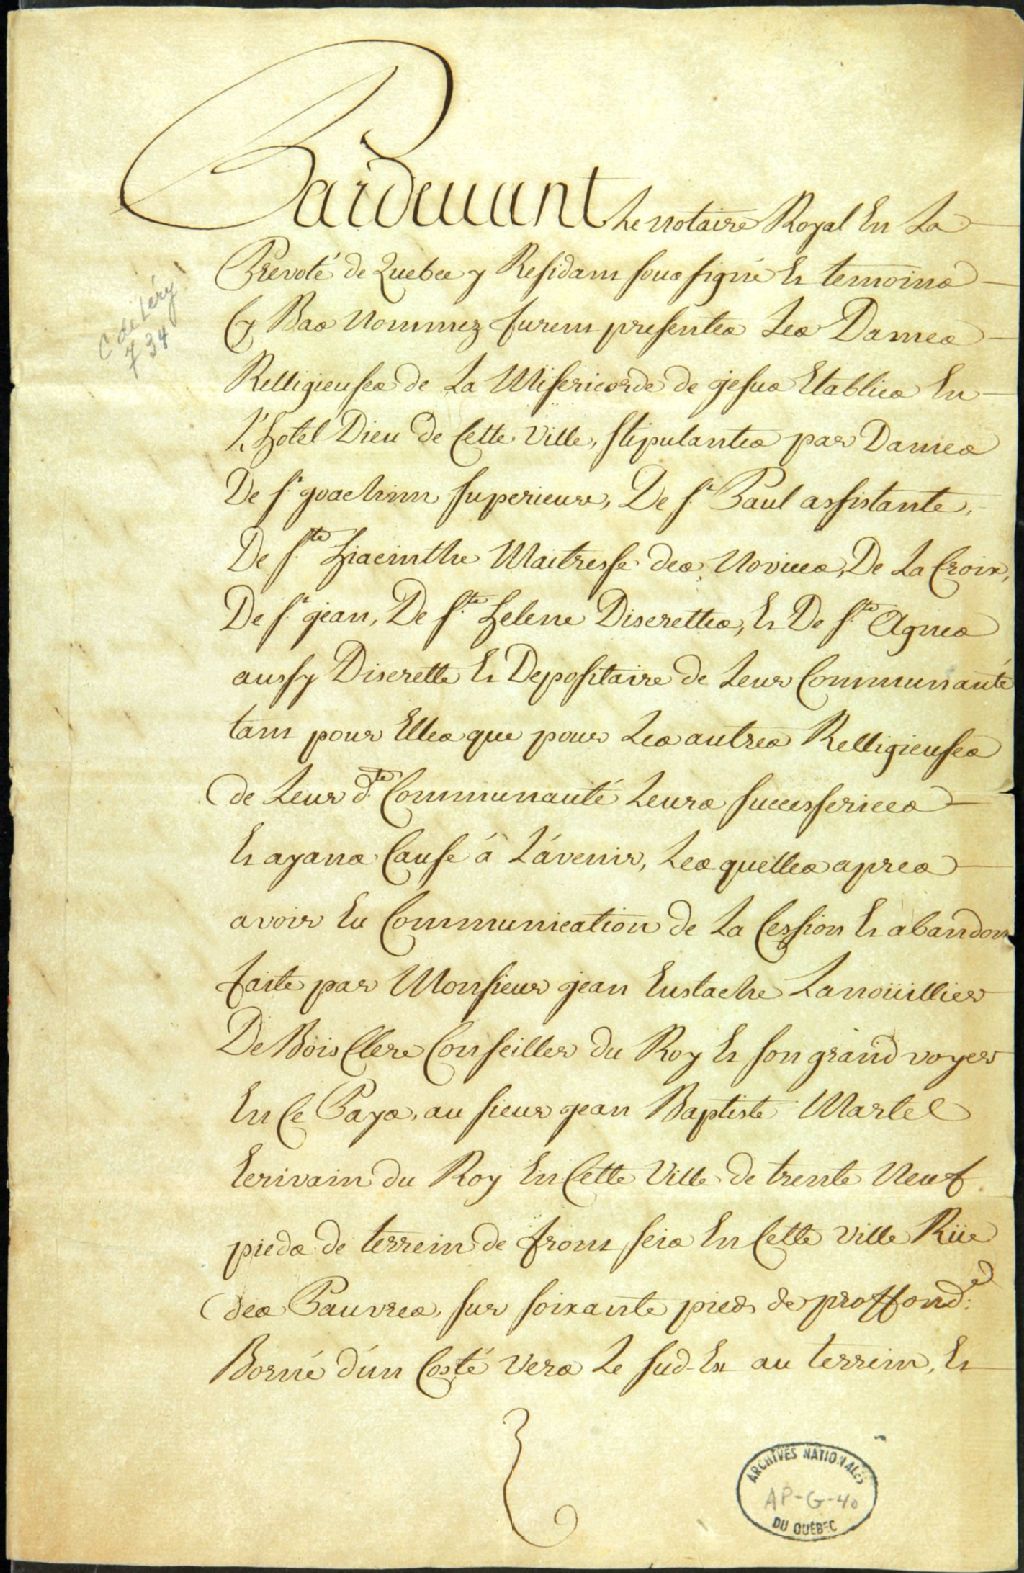 Pardevant Le notaire Royal En La
Prevoté de Quebec y Residant sous signé Et temoins
Cy Bas Nommez furent presentes Les Dames
Relligieuses de La Misericorde de jesus Etablies En
L'hotel Dieu de Cette Ville, stipulantes par Dames
De st joachim superieure, De st Paul assistante,
De ste hiacinthe Maitresse des Novices, De La Croix,
De st jean, De ste helene Discrettes, Et De ste Agnes
aussy Discrette Et Depositaire de Leur Communauté
tant pour Elles que pour Les autres Relligieuses
de Leur dte Communauté Leurs successerices
Et ayans Cause á L'ávenir, Les quelles apres
avoir Eu Communication de La Cession Et abandon
faite par Monsieur jean Eustache Lanoüillier
De Bois Clerc Conseiller du Roy Et son grand voyer
En Cé Pays, au sieur jean Baptiste Martel
Ecrivain du Roy En Cette Ville de trente Neuf
pieds de terrein de front seis En Cette ville Rüe
des Pauvres, sur soixante pieds de proffond:r
Borné d'ún Costé vers Le sud-Est au terrein, Et
C de Léry
734
ARCHIVES NATIONALES
AP-G-40
DU QUÉBEC